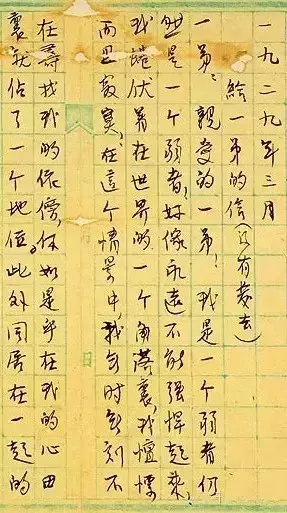 一九二九年三月
給一弟的信(沒有發去)
一弟!親愛的一弟!我是一个弱者仍
然是一个弱者!好像永遠不能強悍起來。
我蜷伏着在世界的一个角落裏,我
而且寂寞,在這个情景中,我無时無刻不
在尋找我的依傍,你如是乎在我的心田
裏就佔了一个地位。此外同居在一起的